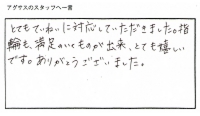 アグサスのスタッフへ一言
とてもていねいに対応していただきました。指
輪も、満足のいくものが出来、とても嬉しい
です。ありがとうございました。